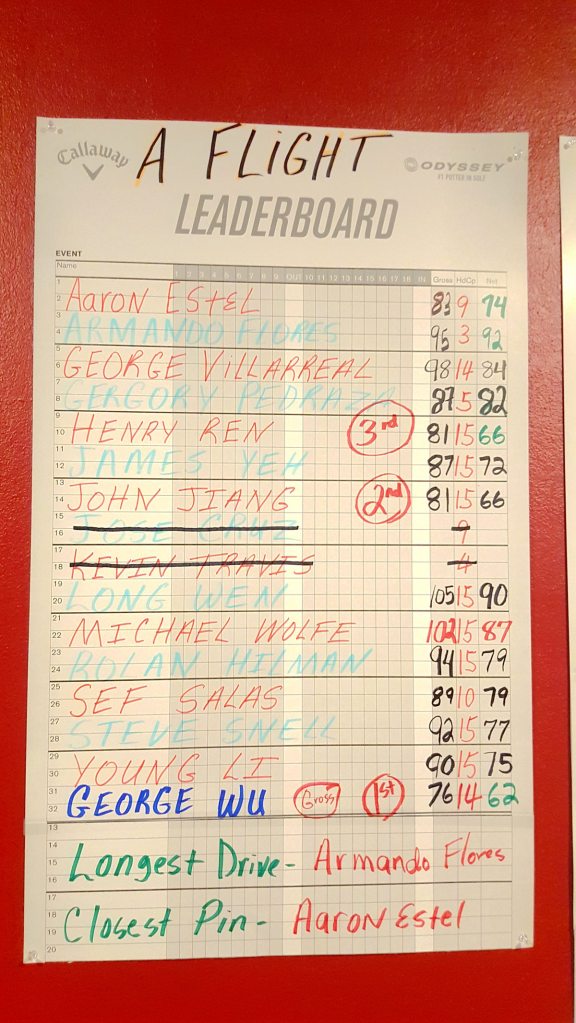 A FLIGHT
Callaway
ODYSSEY
#1 PUTTER IN GOLF
LEADERBOARD
EVENT
Name 1 2 3 4 5 6 7 8 9 OUT 10 11 12 13 14 15 16 17 18 IN Gross HdCp Net
1
2 Aaron Estel 83 9 74
3
4 ARMANDO FLORES 95 3 92
5
6 GEORGE VILLARREAL 98 14 84
7
8 GERGORY PEDRAZA 87 5 82
9
10 HENRY REN 3rd 81 15 66
11
12 JAMES YEH 87 15 72
13
14 JOHN JIANG 2nd 81 15 66
15
16 JOSE CRUZ 9
17
18 KEVIN TRAVIS 4
19
20 LONG WEN 105 15 90
21
22 MICHAEL WOLFE 102 15 87
23
24 ROLAN HILMAN 94 15 79
25
26 SEF SALAS 89 10 79
27
28 STEVE SNELL 92 15 77
29
30 YOUNG LI 90 15 75
31
32 GEORGE WU Gross 1st 76 14 62
13
14
15 Longest Drive - Armando Flores
16
17
18
19 Closest Pin - Aaron Estel
20